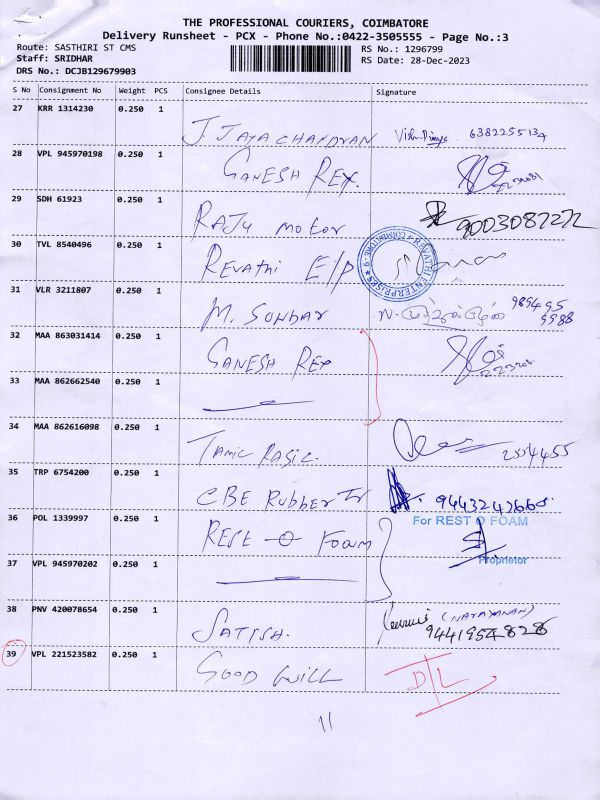 THE PROFESSIONAL COURIERS, COIMBATORE
Delivery Runsheet - PCX - Phone No.:0422-3505555 - Page No.:3
Route: SASTHIRI ST CMS
RS No.: 1296799
Staff: SRIDHAR
RS Date: 28-Dec-2023
DRS No.: DCJB129679903
S No Consignment No Weight PCS Consignee Details Signature
27 KRR 1314230 0.250 1
J JAYACHANDRAN 6382255134
28 VPL 945970198 0.250 1
GANESH REX.
29 SDH 61923 0.250 1
RAJU MOTOR 9003087272
30 TVL 8540496 0.250 1
REVATHI E/P
REVATHI ENTERPRISES COIMBATORE-9
31 VLR 3211807 0.250 1
M. SUNDAR 989495
9988
32 MAA 863031414 0.250 1
GANESH REX
33 MAA 862662540 0.250 1
34 MAA 862616098 0.250 1
TAMIL RASIC. 2504455
35 TRP 6754200 0.250 1
CBE RUBBER Tr 9443247660
36 POL 1339997 0.250 1
REST-O FOAM
For REST O FOAM
Proprietor
37 VPL 945970202 0.250 1
38 PNV 420078654 0.250 1
SATISH. (NARAYANAN)
9441954828
39 VPL 221523582 0.250 1
GOOD WILL D/L
11